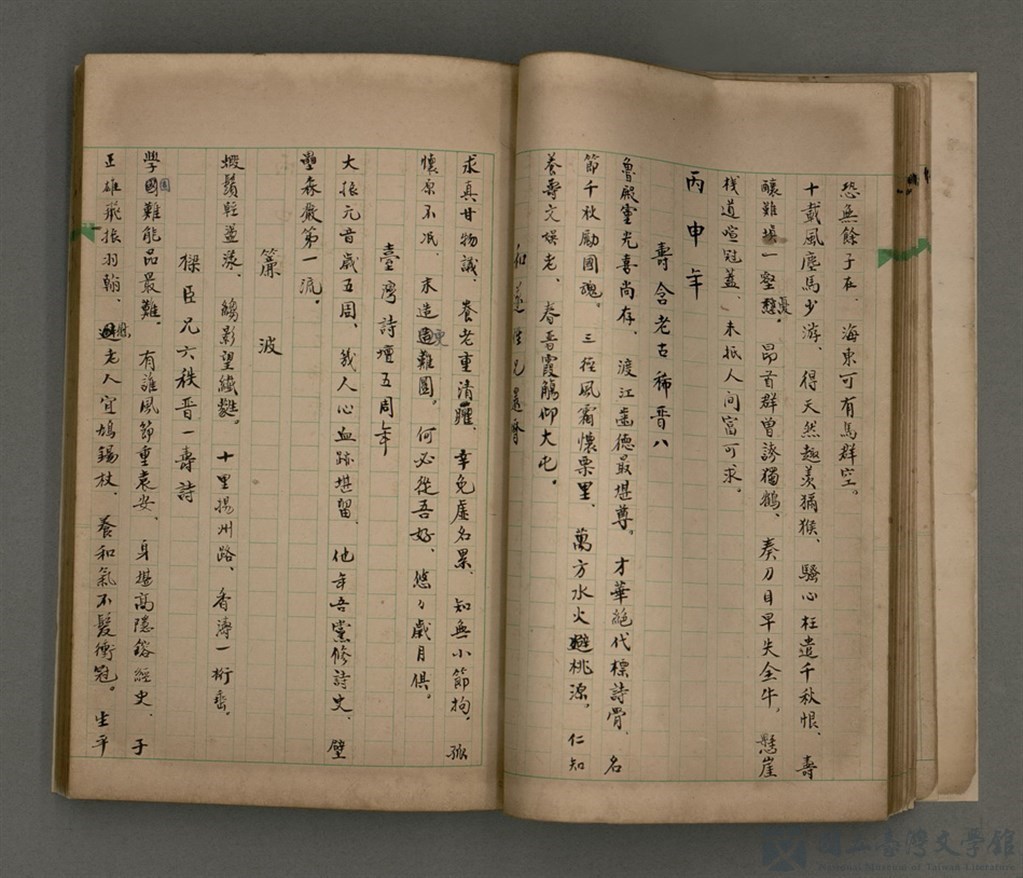 恐無餘子在、海東可有馬群空。
十載風塵馬少游、得天然趣羨獼猴、騷心枉遣千秋恨、壽
釀難填一壑愁。昂首群曾誇獨鶴、奏刀目早失全牛、懸崖
棧道喧冠蓋、未抵人间富可求。
丙申年
壽含老古稀晉八
魯殿靈光喜尚存、渡江齒德最堪尊。才華絕代標詩骨、名
節千秋勵國魂。三徑風霜懷栗里、萬方水火避桃源。仁知
養壽文娛老、春晉霞觴仰大屯。
求真甘物議、養老重清臞、幸免虛名累、知無小節拘。孤
懷原不泯、未造更難圖。何必從吾好、悠々歲月俱。
臺灣詩壇五周年
大振元音歲五周、幾人心血跡堪留、他年吾黨修詩史、壁
壘森嚴第一流。
簾波
蝦鬚輕盪漾、觴影望纖纖。十里揚州路、香濤一桁垂。
樑臣兄六秩晉一壽詩
學圃難能品最難。有誰風節重袁安、身堪高隱鎔經史、子
正雄飛振羽翰、避老人宜鳩錫杖、養和氣不髮衝冠。生平
國立臺灣文學館
National Museum of Taiwan Literature